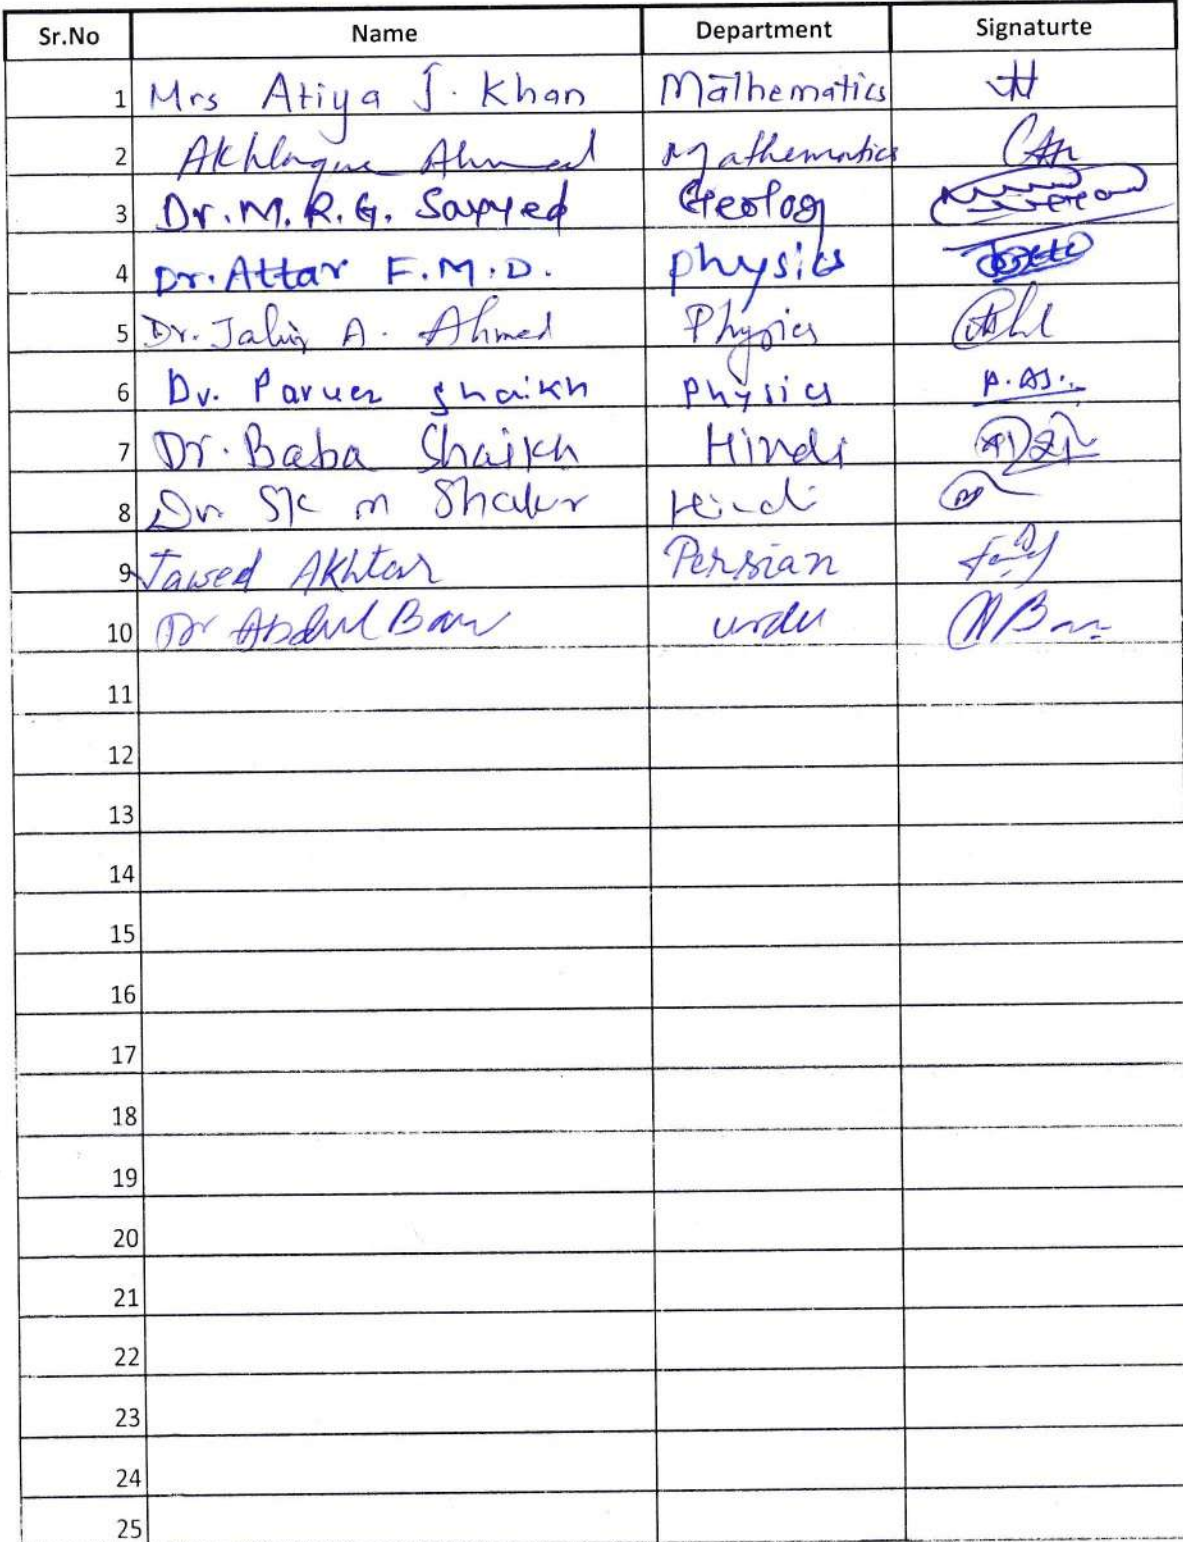 Sr.No Name Department Signaturte
1 Mrs Atiya J. Khan Mathematics
2 Akhlaque Ahmed Mathematics
3 Dr. M. R. G. Sayyed Geology
4 Dr. Attar F. M. D. physics
5 Dr. A. Ahmed Physics
6 Dr. Parvez Shaikh Physics
7 Dr. Baba Shaikh Hindi
8 Dr Sk m Hindi
9 Jawed Akhtar Persian
10 Dr Abdul Bari urdu
11
12
13
14
15
16
17
18
19
20
21
22
23
24
25